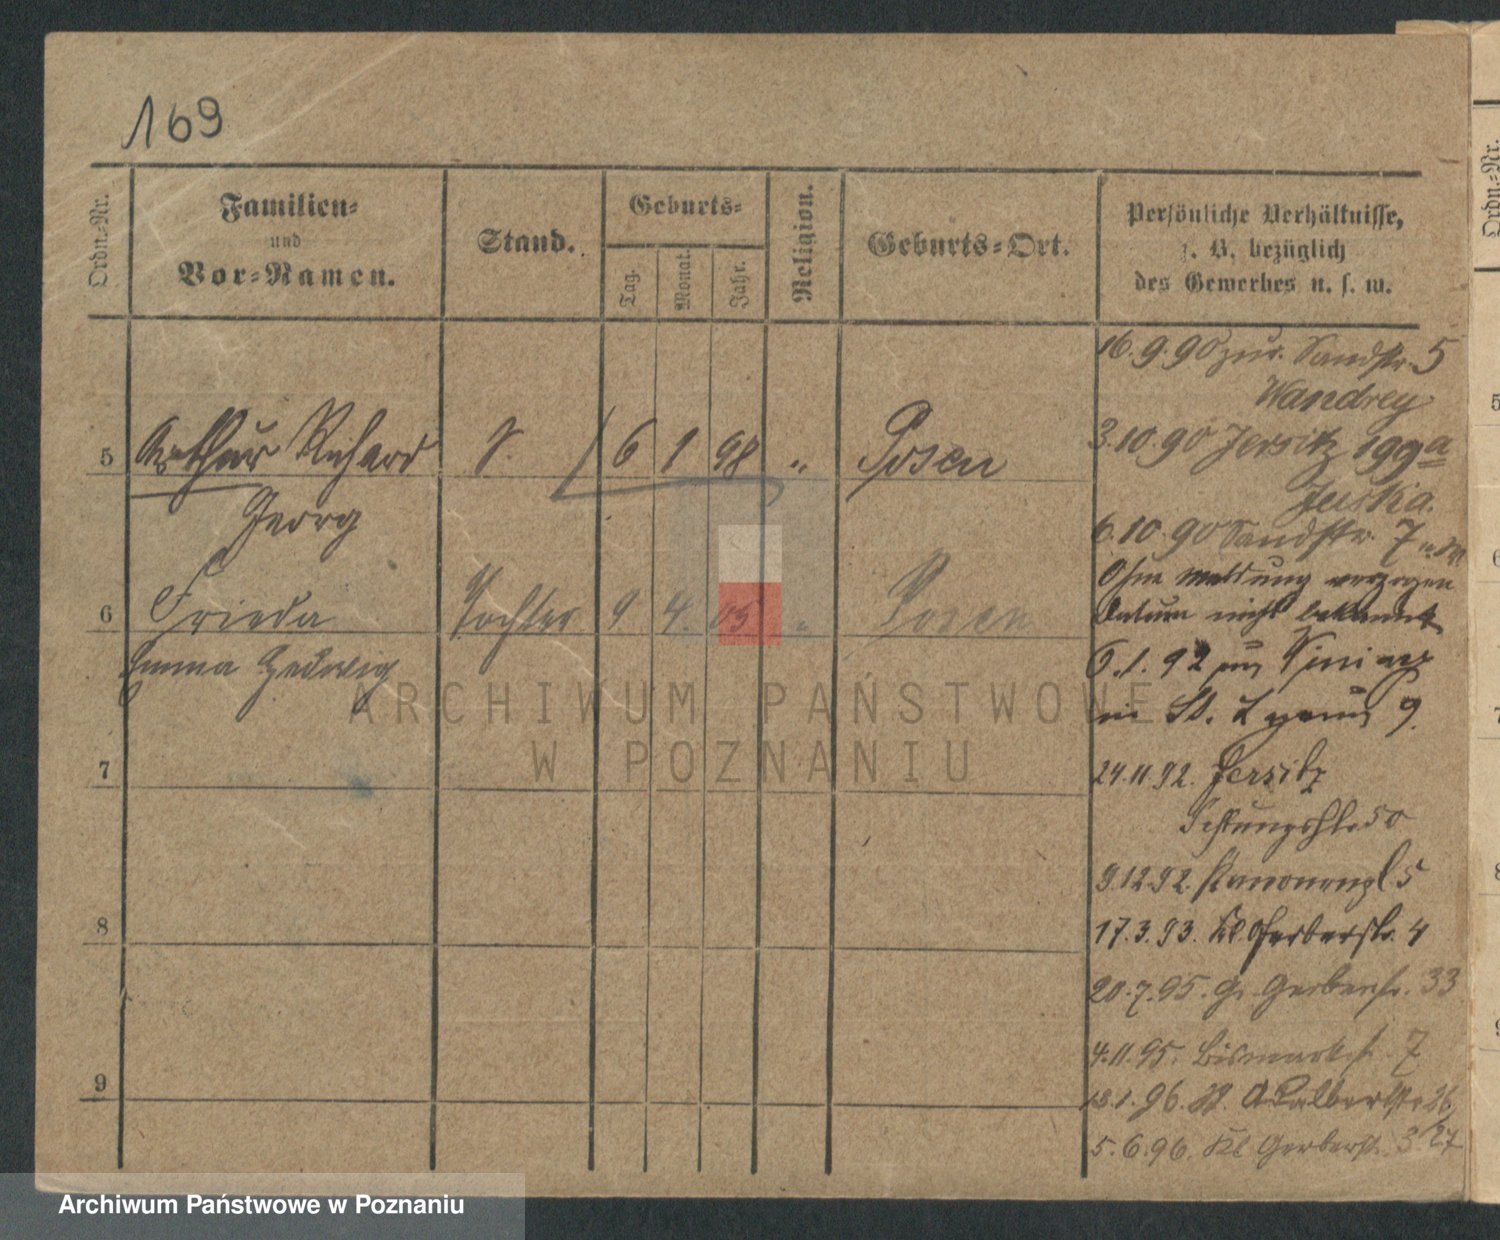 169
Ordn.-Nr.
Familien-
und
Vor-Namen.
Stand.
Geburts-
Tag.
Monat.
Jahr.
Religion.
Geburts-Ort.
Persönliche Verhältnisse,
z. B. bezüglich
des Gewerbes u. s. w.
16.9.90 zur. Sandstr. 5
Wandrey
5 Arthur Richard S. 6 1 98 " Posen
Georg
3.10.90 Jersitz 199a
6.10.90 Sandstr. 7
Ohne Meldung verzogen
Datum nicht bekannt
6 Frieda Tochter 9 4. 05 " Posen
Emma Hedwig
6.1.92
in St. 9.
7
24.11.92. Jersitz
50
9.12.92. Kanonenpl 5
8
17.3.93. Kl. Gerberstr. 4
20.7.95. Gr. Gerberstr. 33
4.11.95. Bismarckstr. 7
9
18.1.96. St. Adalbertstr 26/27
5.6.96. Kl Gerberstr. 3
ARCHIWUM PAŃSTWOWE
W POZNANIU
Archiwum Państwowe w Poznaniu
Ordn.-Nr.
5
6
7
8
9